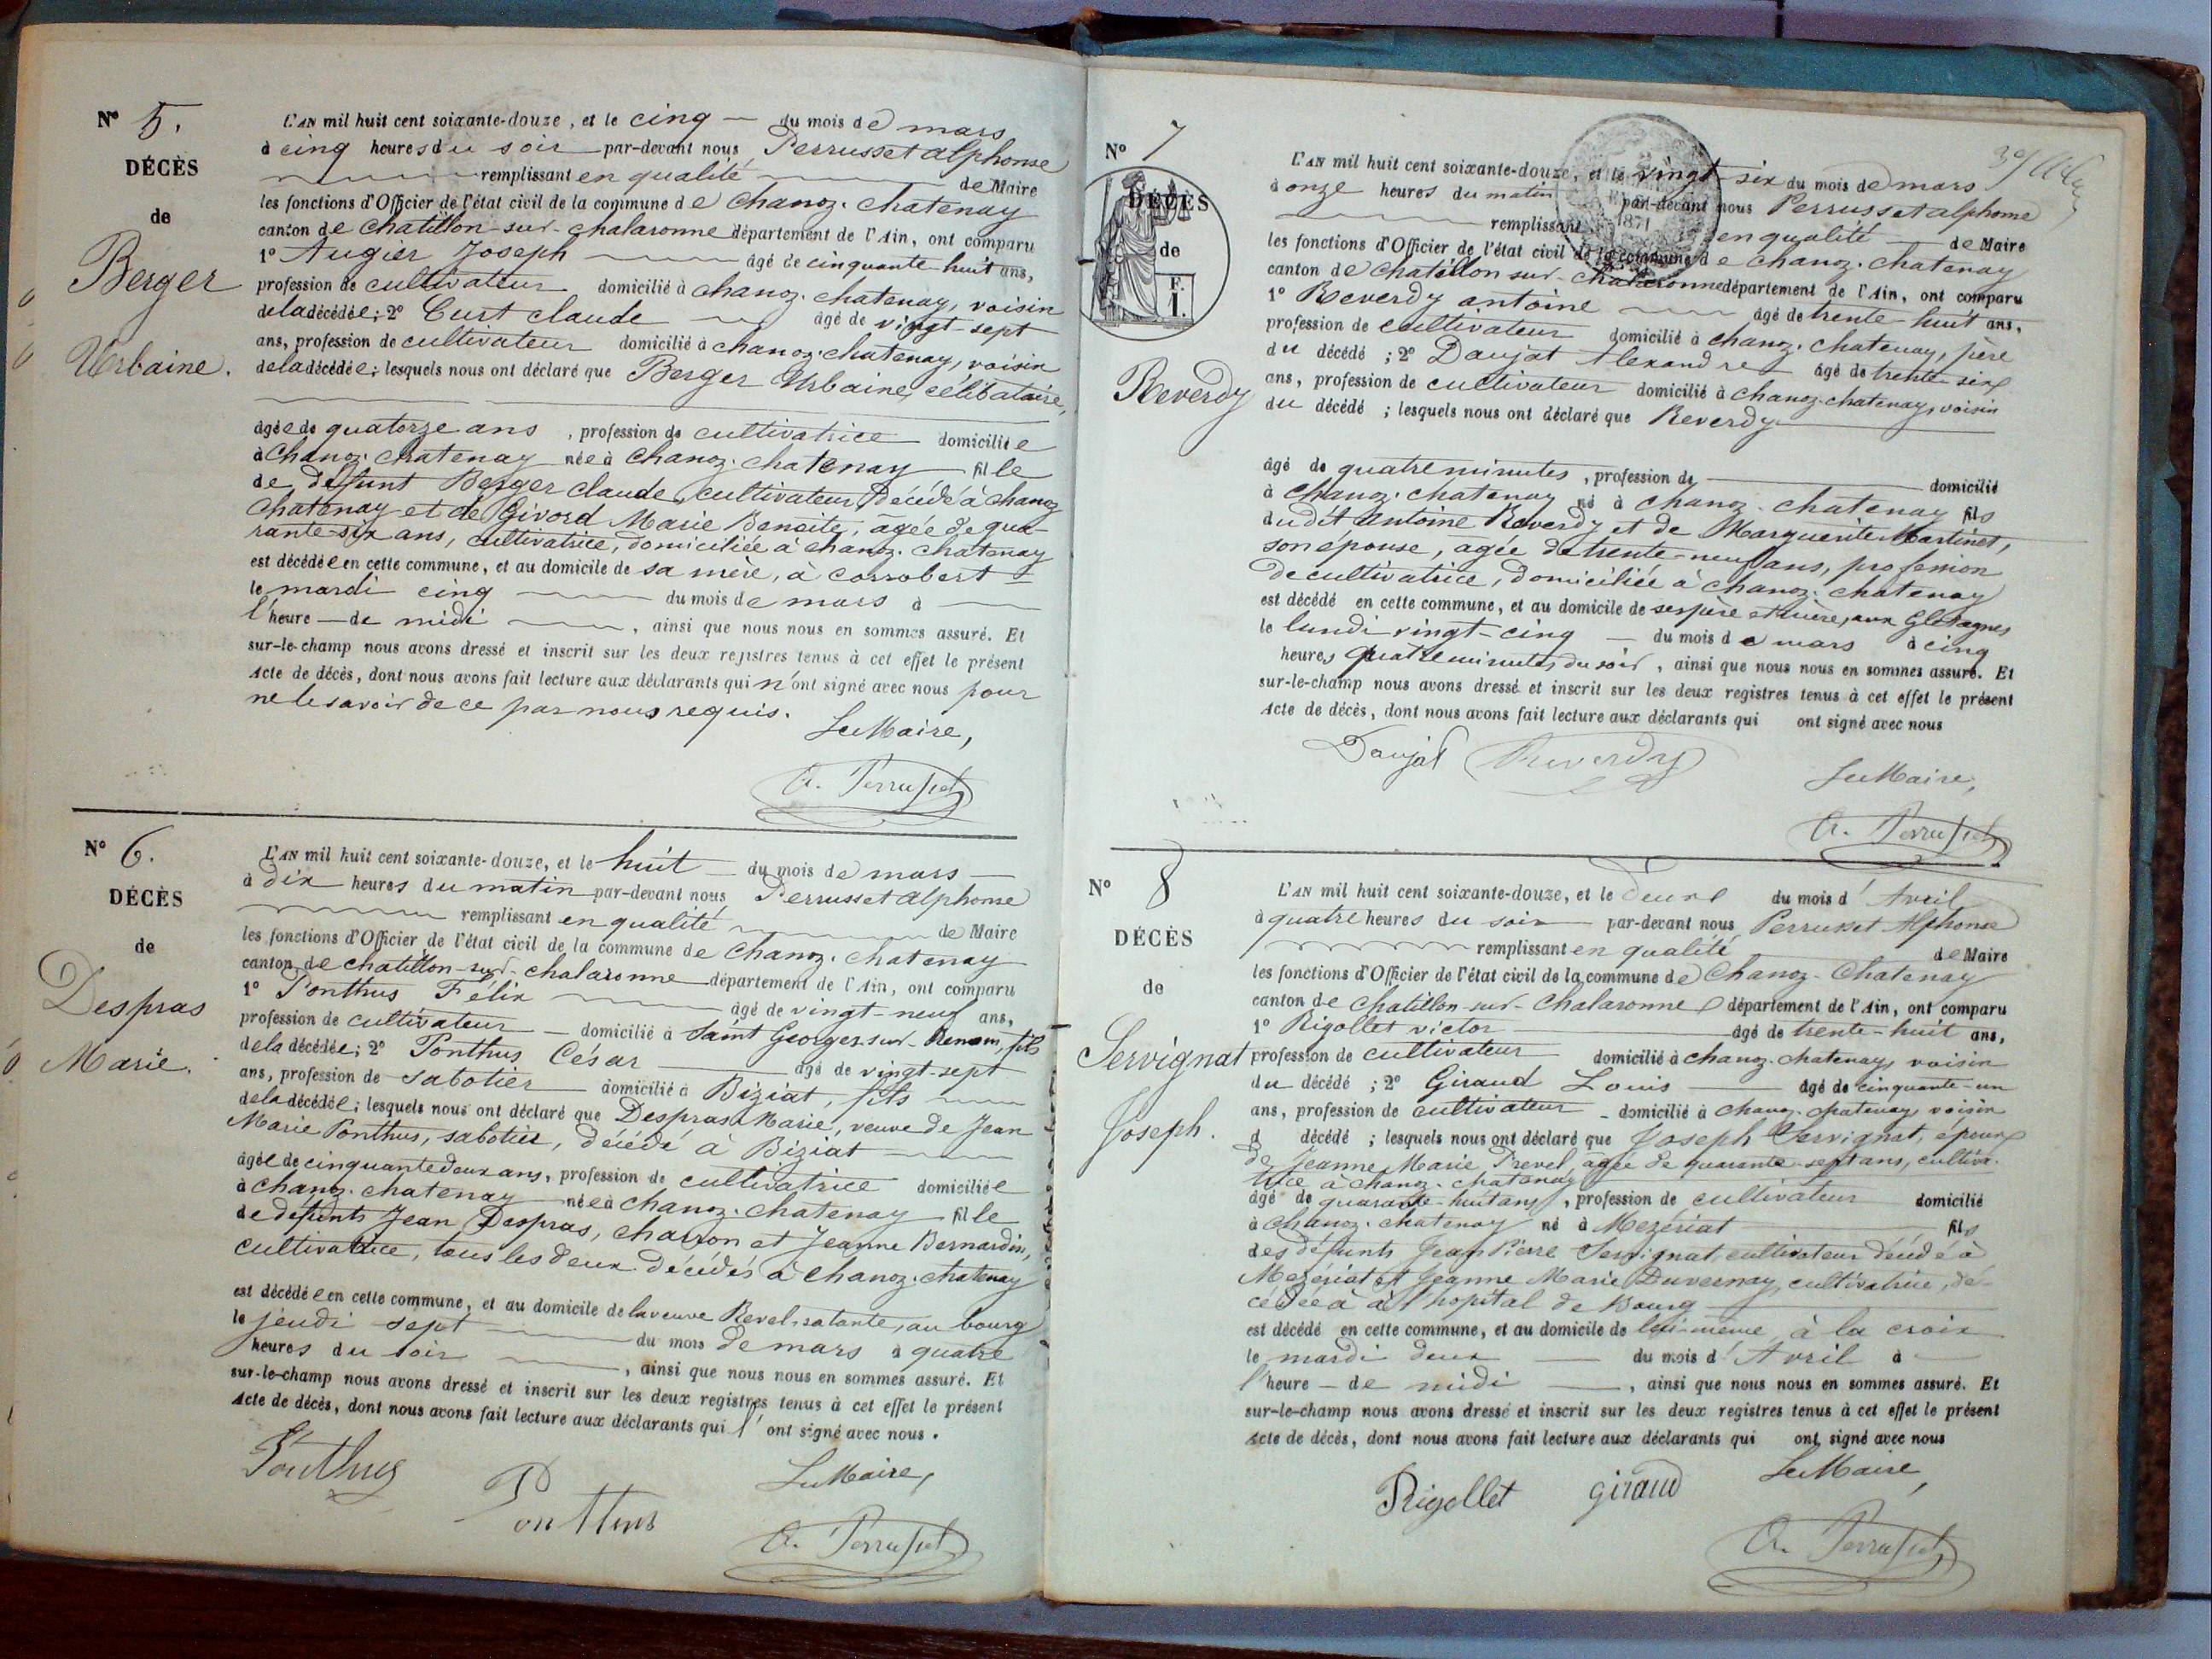 N° 5.
DÉCÈS
de
Berger
Urbaine.
L'AN mil huit cent soixante-douze, et le cinq du mois de mars
à cinq heures du soir par-devant nous Perrusset alphonse
remplissant en qualité de Maire
les fonctions d'Officier de l'état civil de la commune de Chanoz. chatenay
canton de Chatillon-sur-chalaronne département de l'Ain, ont comparu
1° Augier Joseph âgé de cinquante-huit ans,
profession de cultivateur domicilié à chanoz. chatenay, voisin
de la décédée; 2° Curt claude âgé de vingt-sept
ans, profession de cultivateur domicilié à chanoz. chatenay, voisin
de la décédée; lesquels nous ont déclaré que Berger Urbaine, célibataire,
âgée de quatorze ans, profession de cultivatrice domiciliée
à Chanoz. chatenay née à Chanoz. chatenay fille
de défunt Berger claude, cultivateur, décédé à chanoz
chatenay et de Givord Marie Benoite, âgée de qua-
rante-six ans, cultivatrice, domiciliée à chanoz. chatenay
est décédée en cette commune, et au domicile de sa mère, à corrobert
le mardi cinq du mois de mars à
l'heure de midi, ainsi que nous nous en sommes assuré. Et
sur-le-champ nous avons dressé et inscrit sur les deux registres tenus à cet effet le présent
Acte de décès, dont nous avons fait lecture aux déclarants qui n'ont signé avec nous pour
ne le savoir de ce par nous requis.
Le Maire,
A. Perrusset
N° 6.
DÉCÈS
de
Despras
Marie.
L'AN mil huit cent soixante-douze, et le huit du mois de mars
à dix heures du matin par-devant nous Perrusset alphonse
remplissant en qualité de Maire
les fonctions d'Officier de l'état civil de la commune de Chanoz. chatenay
canton de chatillon-sur-chalaronne département de l'Ain, ont comparu
1° Ponthus Félix âgé de vingt-neuf ans,
profession de cultivateur domicilié à Saint Georges-sur-Renom, fils
de la décédée; 2° Ponthus César âgé de vingt-sept
ans, profession de sabotier domicilié à Biziat, fils
de la décédée; lesquels nous ont déclaré que Despras Marie, veuve de Jean
Marie Ponthus, sabotier, décédé à Biziat
âgée de cinquante deux ans, profession de cultivatrice domiciliée
à chanoz. chatenay née à chanoz. chatenay fille
de défunts Jean Despras, charron et Jeanne Bernardin,
cultivatrice, tous les deux décédés à chanoz. chatenay
est décédée en cette commune, et au domicile de la veuve Revel, sa tante, au bourg
le jeudi sept du mois de mars à quatre
heures du soir, ainsi que nous nous en sommes assuré. Et
sur-le-champ nous avons dressé et inscrit sur les deux registres tenus à cet effet le présent
Acte de décès, dont nous avons fait lecture aux déclarants qui l'ont signé avec nous.
Ponthus
Ponthus
Le Maire,
A. Perrusset
N° 7
DÉCÈS
de
F.
1.
Reverdy
1871
L'AN mil huit cent soixante-douze, et le vingt-six du mois de mars
à onze heures du matin par-devant nous Perrusset alphonse
remplissant en qualité de Maire
les fonctions d'Officier de l'état civil de la commune de chanoz. chatenay
canton de chatillon sur-chalaronne département de l'Ain, ont comparu
1° Reverdy antoine âgé de trente-huit ans,
profession de cultivateur domicilié à chanoz. chatenay, père
du décédé; 2° Daujat Alexandre âgé de trente-six
ans, profession de cultivateur domicilié à chanoz. chatenay, voisin
du décédé; lesquels nous ont déclaré que Reverdy
âgé de quatre minutes, profession de domicilié
à Chanoz. chatenay né à chanoz. chatenay fils
du dit Antoine Reverdy et de Marguerite Martinet,
son épouse, agée de trente-neuf ans, profession
de cultivatrice, domiciliée à chanoz. chatenay
est décédé en cette commune, et au domicile de ses père et mère, aux Glétagnes
le lundi vingt-cinq du mois de mars à cinq
heures quatre minutes du soir, ainsi que nous nous en sommes assuré. Et
sur-le-champ nous avons dressé et inscrit sur les deux registres tenus à cet effet le présent
Acte de décès, dont nous avons fait lecture aux déclarants qui ont signé avec nous
Daujat Reverdy
Le Maire,
A. Perrusset
N° 8
DÉCÈS
de
Servignat
Joseph.
L'AN mil huit cent soixante-douze, et le deux du mois d'Avril
à quatre heures du soir par-devant nous Perrusset Alphonse
remplissant en qualité de Maire
les fonctions d'Officier de l'état civil de la commune de Chanoz-Chatenay
canton de Chatillon-sur-Chalaronne département de l'Ain, ont comparu
1° Rigollet victor âgé de trente-huit ans,
profession de cultivateur domicilié à chanoz. chatenay, voisin
du décédé; 2° Giraud Louis âgé de cinquante-un
ans, profession de cultivateur domicilié à chanoz. chatenay, voisin
d décédé; lesquels nous ont déclaré que Joseph Servignat, époux
de Jeanne Marie Prevel, agée de quarante-sept ans, cultiva-
trice à chanoz. chatenay
âgé de quarante-huit ans, profession de cultivateur domicilié
à Chanoz. chatenay né à Mezériat fils
des défunts Jean Pierre Servignat, cultivateur décédé à
Mezériat et Jeanne Marie Duvernay, cultivatrice, dé-
cédée à à l'hopital de Bourg
est décédé en cette commune, et au domicile de lui-même, à la croix
le mardi deux du mois d'Avril à
l'heure de midi, ainsi que nous nous en sommes assuré. Et
sur-le-champ nous avons dressé et inscrit sur les deux registres tenus à cet effet le présent
Acte de décès, dont nous avons fait lecture aux déclarants qui ont signé avec nous
Rigollet giraud
Le Maire,
A. Perrusset